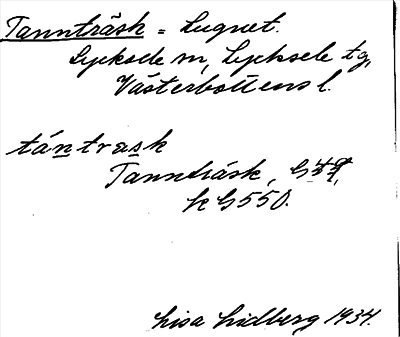 Tannträsk = Lugnet.
Lycksele m, Lycksele tg,
Västerbottens l.
tántrask
Tannträsk,
k G 550.
Lisa Lidberg 1934.